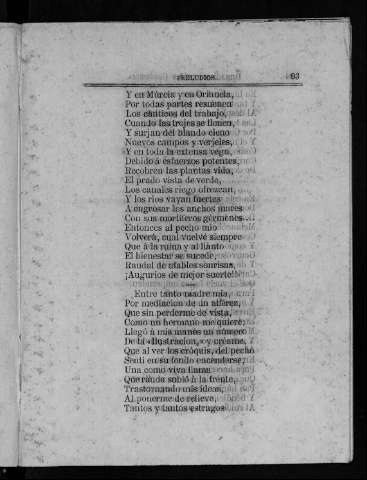 PRELUDIOS. 93
Y en Múrcia y en Orihuela,
Por todas partes resuenen
Los cánticos del trabajo,
Cuando las trojes se llenen,
Y surjan del blando cieno
Nuevos campos y verjeles,
Y en toda la extensa vega,
Debido á esfuerzos potentes,
Recobren las plantas vida,
El prado vista de verde,
Los canales riego ofrezcan,
Y los rios vayan fuertes
A engrosar los anchos mares
Con sus mortíferos gérmenes.
Entonces al pecho mio
Volverá, cual vuelve siempre
Que á la ruina y al llanto
El bienestar se sucede,
Raudal de afables sonrisas,
¡Augurios de mejor suerte!
Entre tanto madre mia,
Por mediacion de un alférez,
Que sin perderme de vista,
Como un hermano me quiere,
Llegó á mis manos un número
De la «Ilustracion,» y créame,
Que al ver los cróquis, del pecho
Sentí en su fondo encenderse
Una como viva llama
Que ráuda subió á la frente,
Trastornando mis ideas,
Al ponerme de relieve,
Tantos y tantos estragos